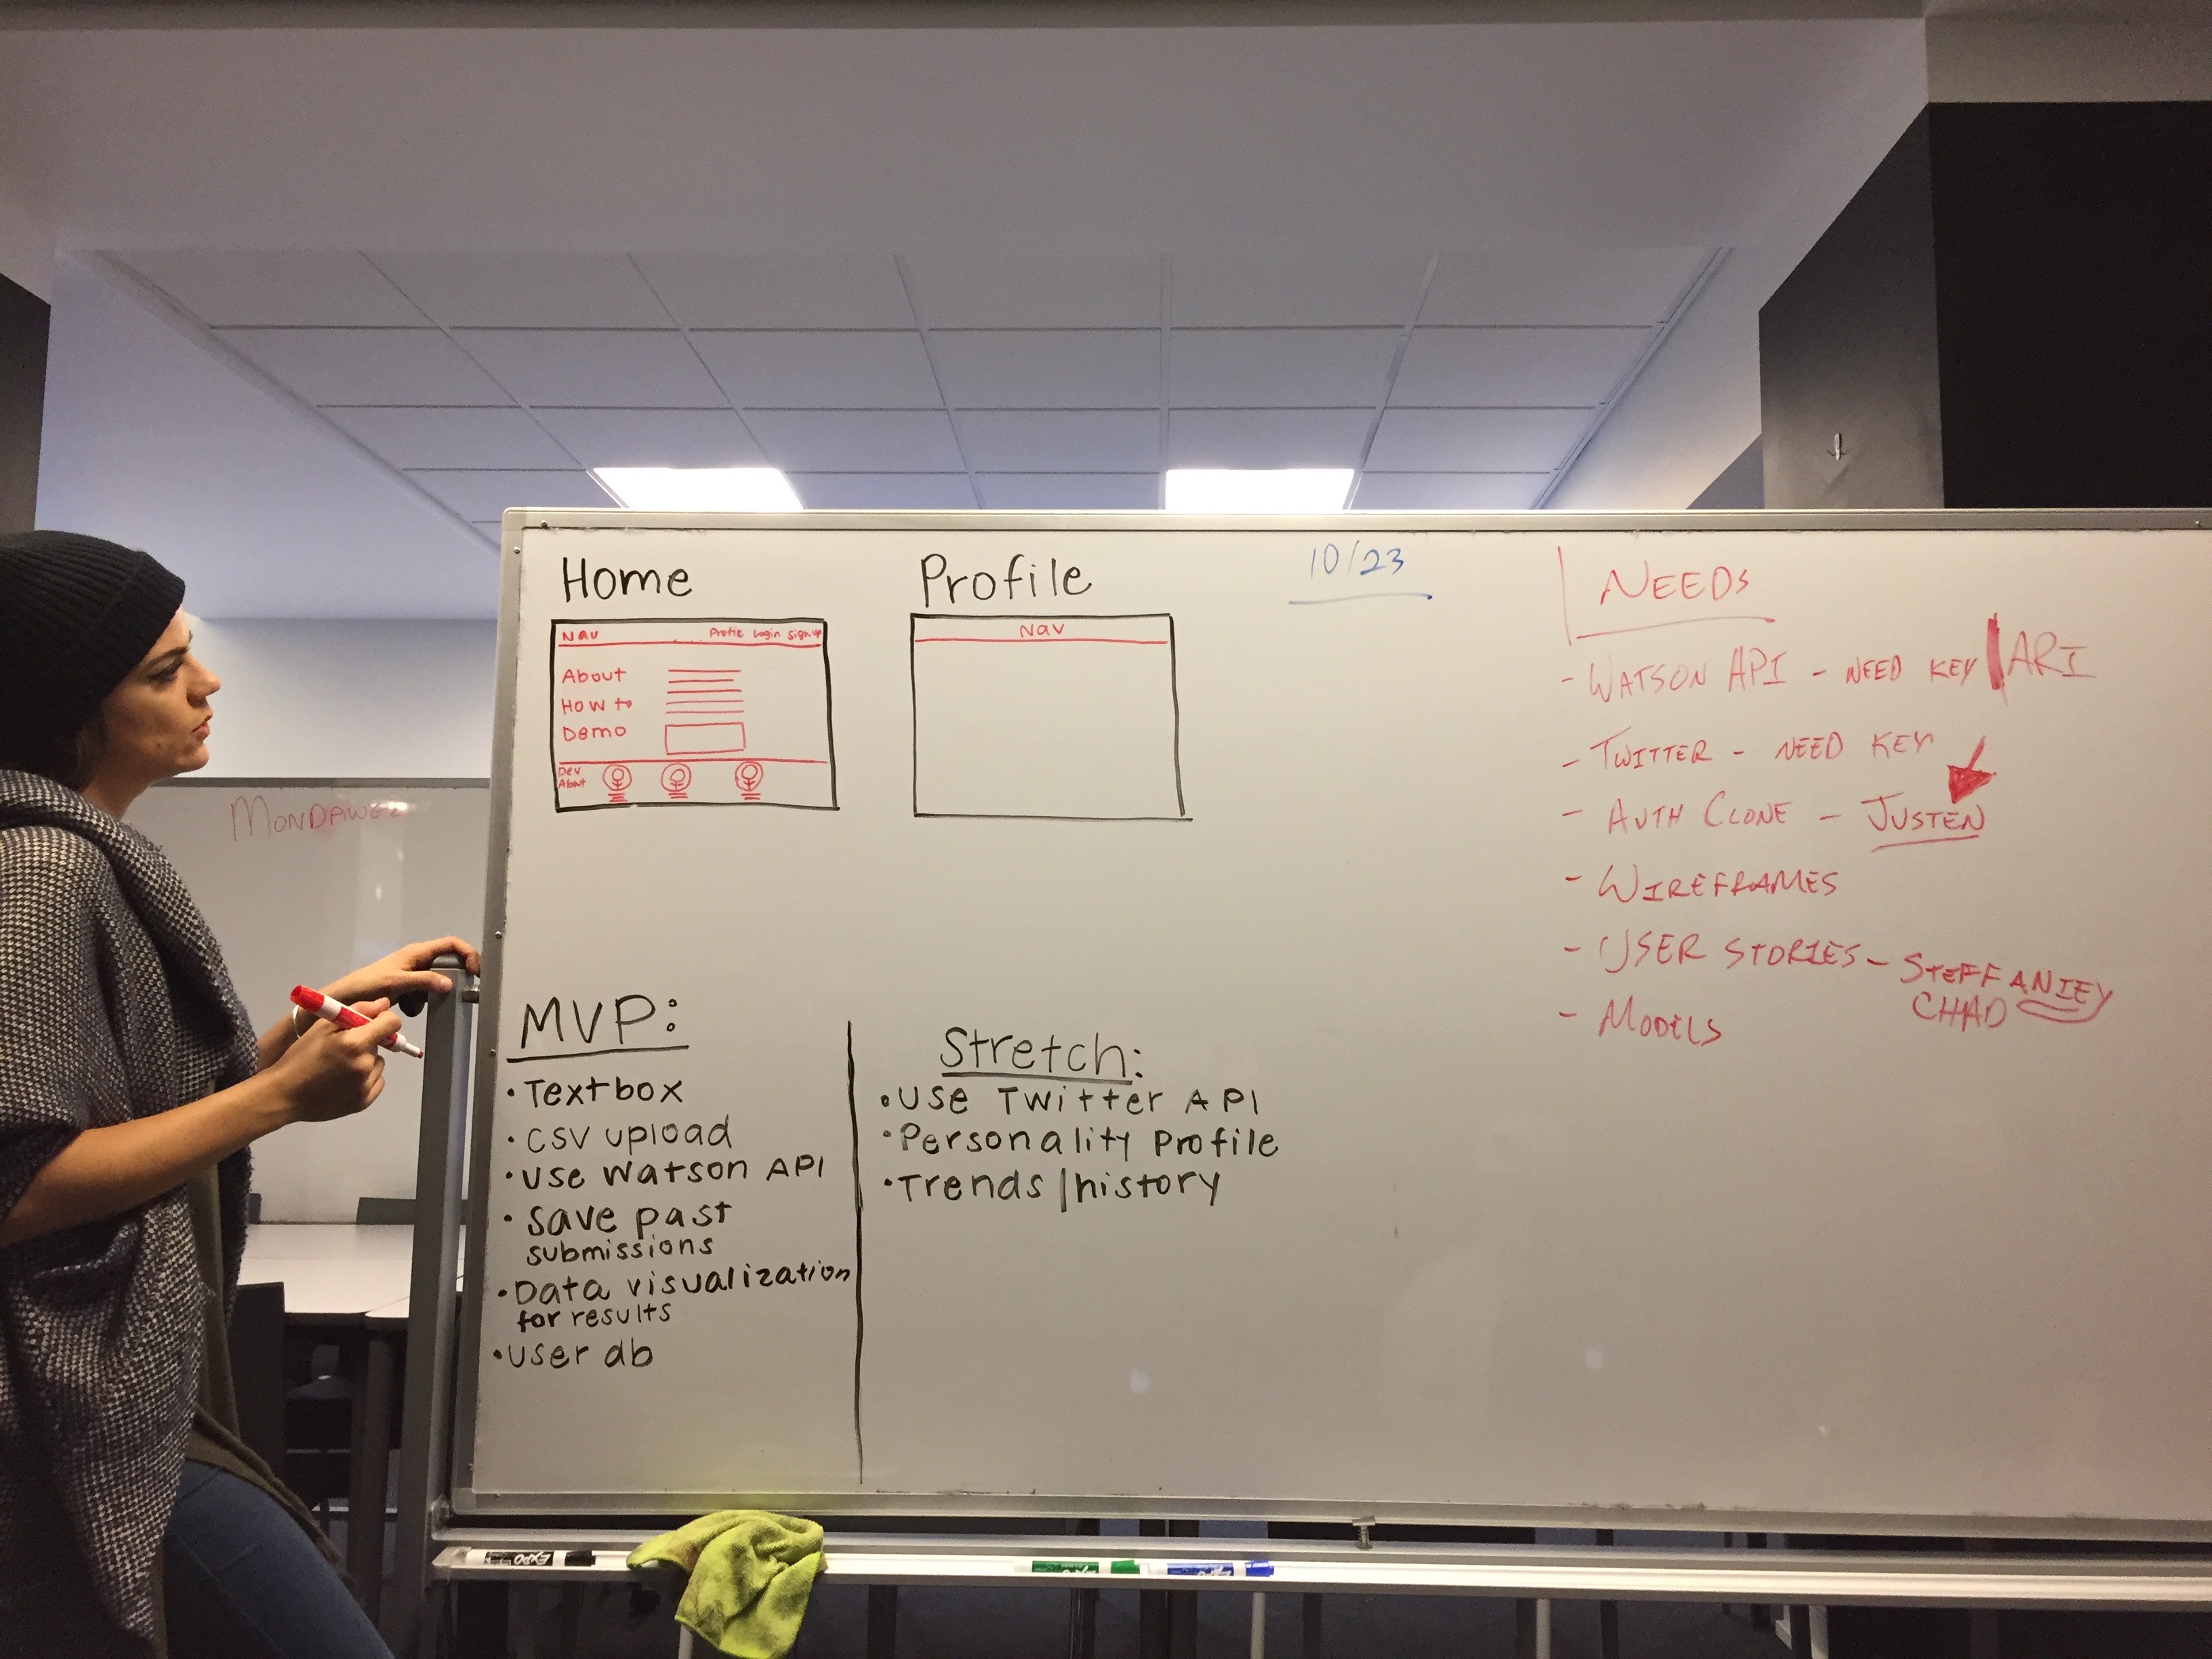 Home
Nav Profile Login Sign up
About
How to
Demo
Dev
About
Profile
Nav
10/23
NEEDS
- WATSON API - NEED KEY | ARI
- TWITTER - NEED KEY
- AUTH CLONE - JUSTEN
- WIREFRAMES
- USER STORIES - STEFFANIEY
CHAD
- MODELS
MVP:
• Textbox
• CSV upload
• Use Watson API
• Save past
submissions
• Data visualization
for results
• User db
Stretch:
• Use Twitter API
• Personality Profile
• Trends/history
EXPO